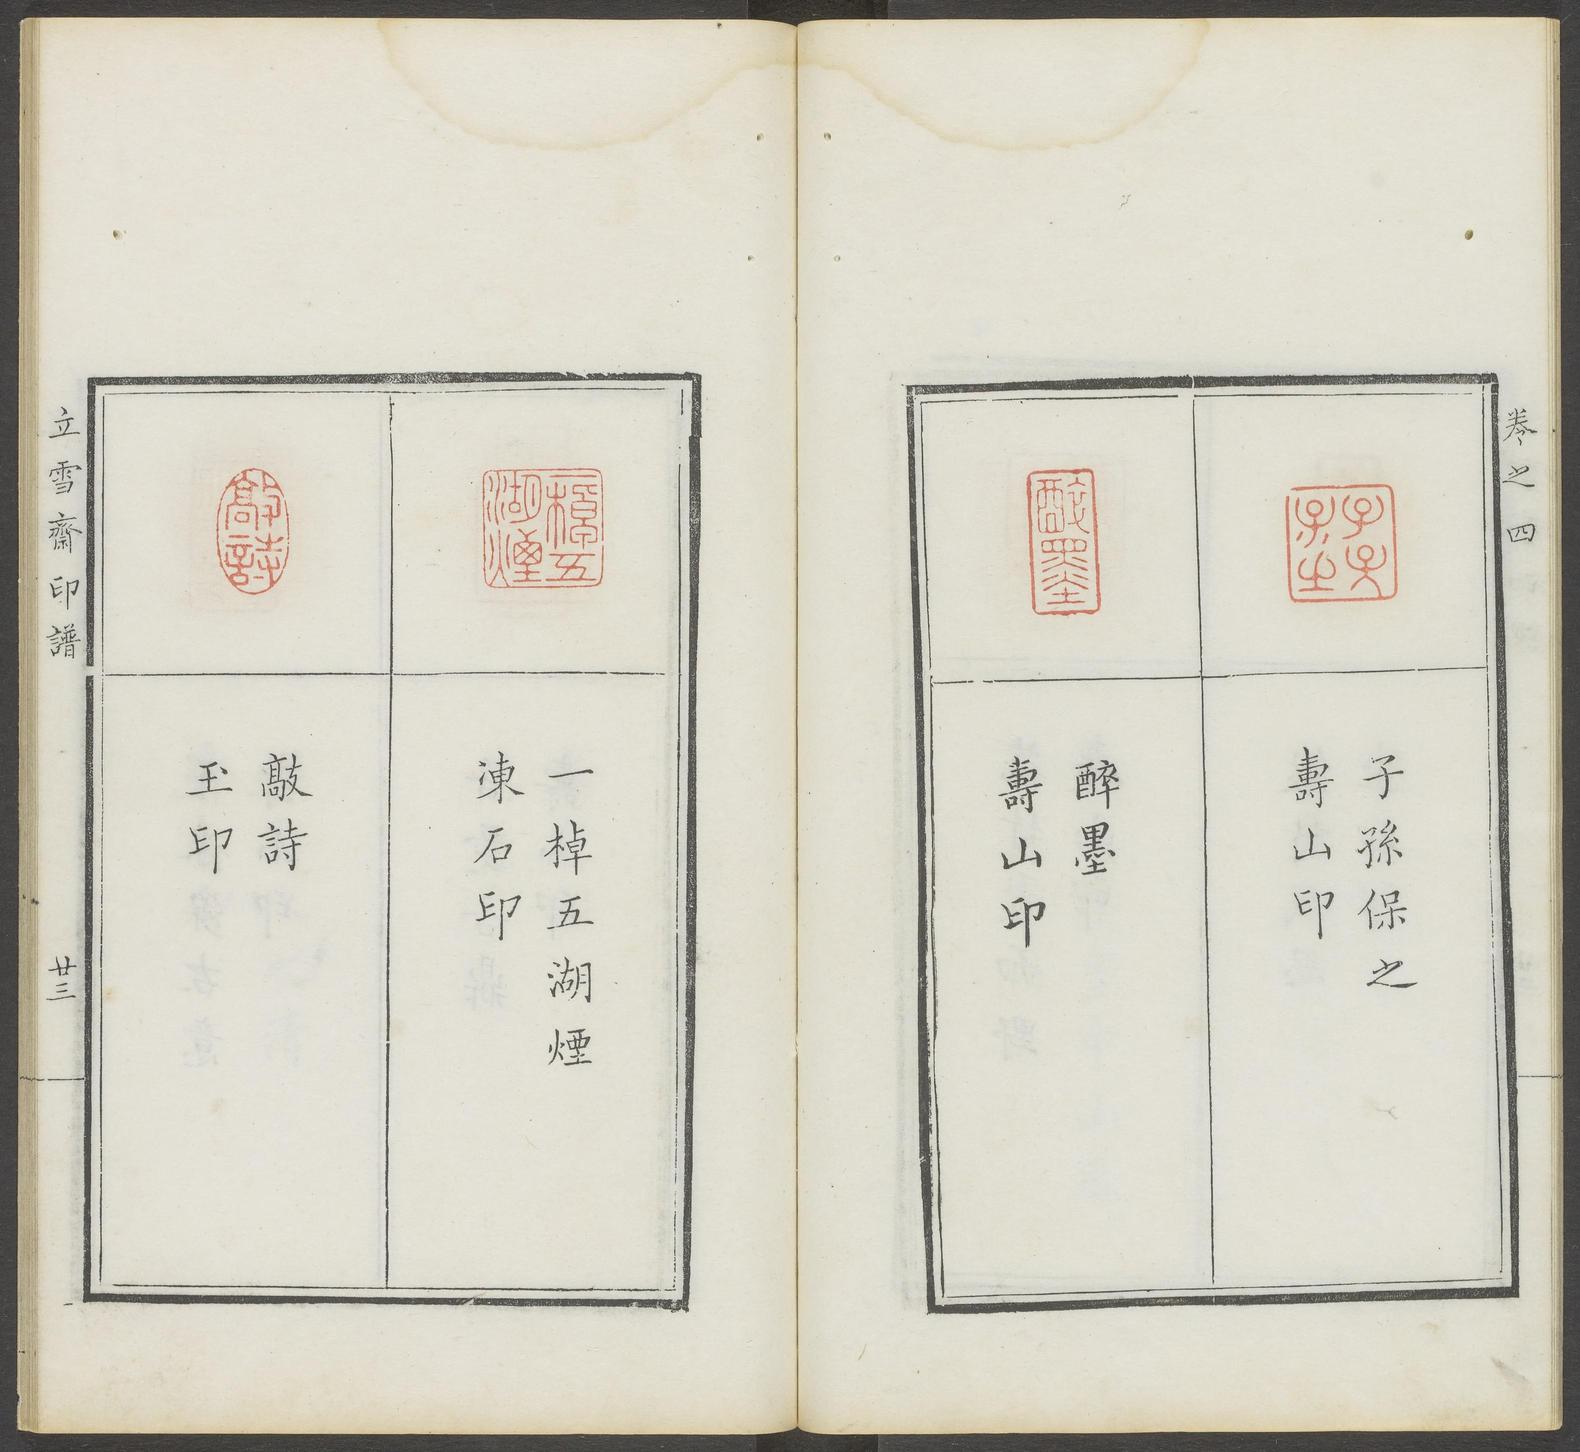 卷之四
子孫保之
子孫保之
壽山印
醉墨
醉墨
壽山印
一棹五湖煙
一棹五湖煙
凍石印
敲詩
敲詩
玉印
立雪齋印譜
廿三